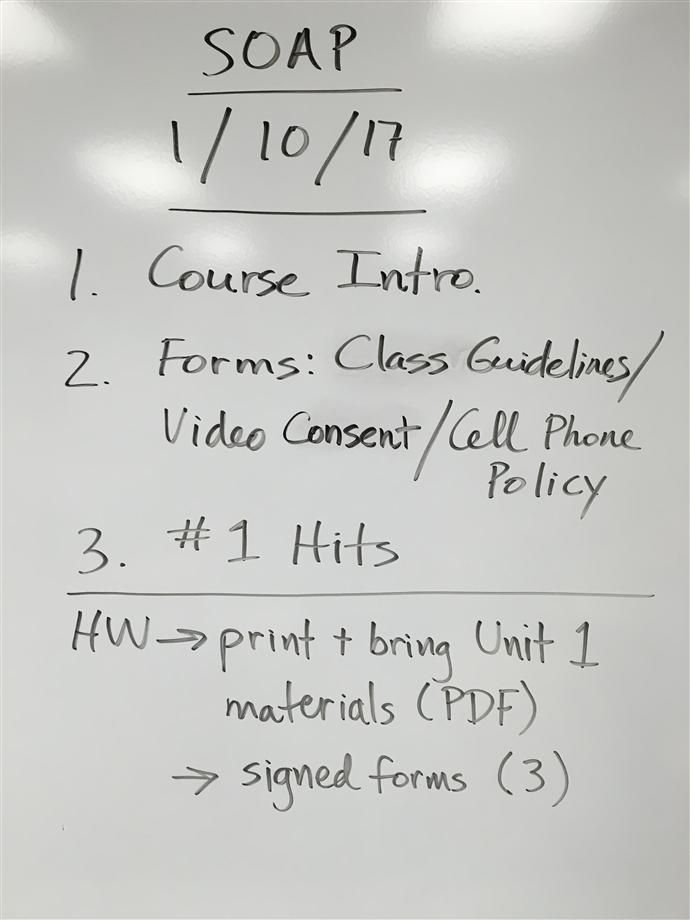 SOAP
1/10/17
1. Course Intro.
2. Forms: Class Guidelines/
Video Consent/Cell Phone
Policy
3. #1 Hits
HW → print + bring Unit 1
materials (PDF)
→ signed forms (3)